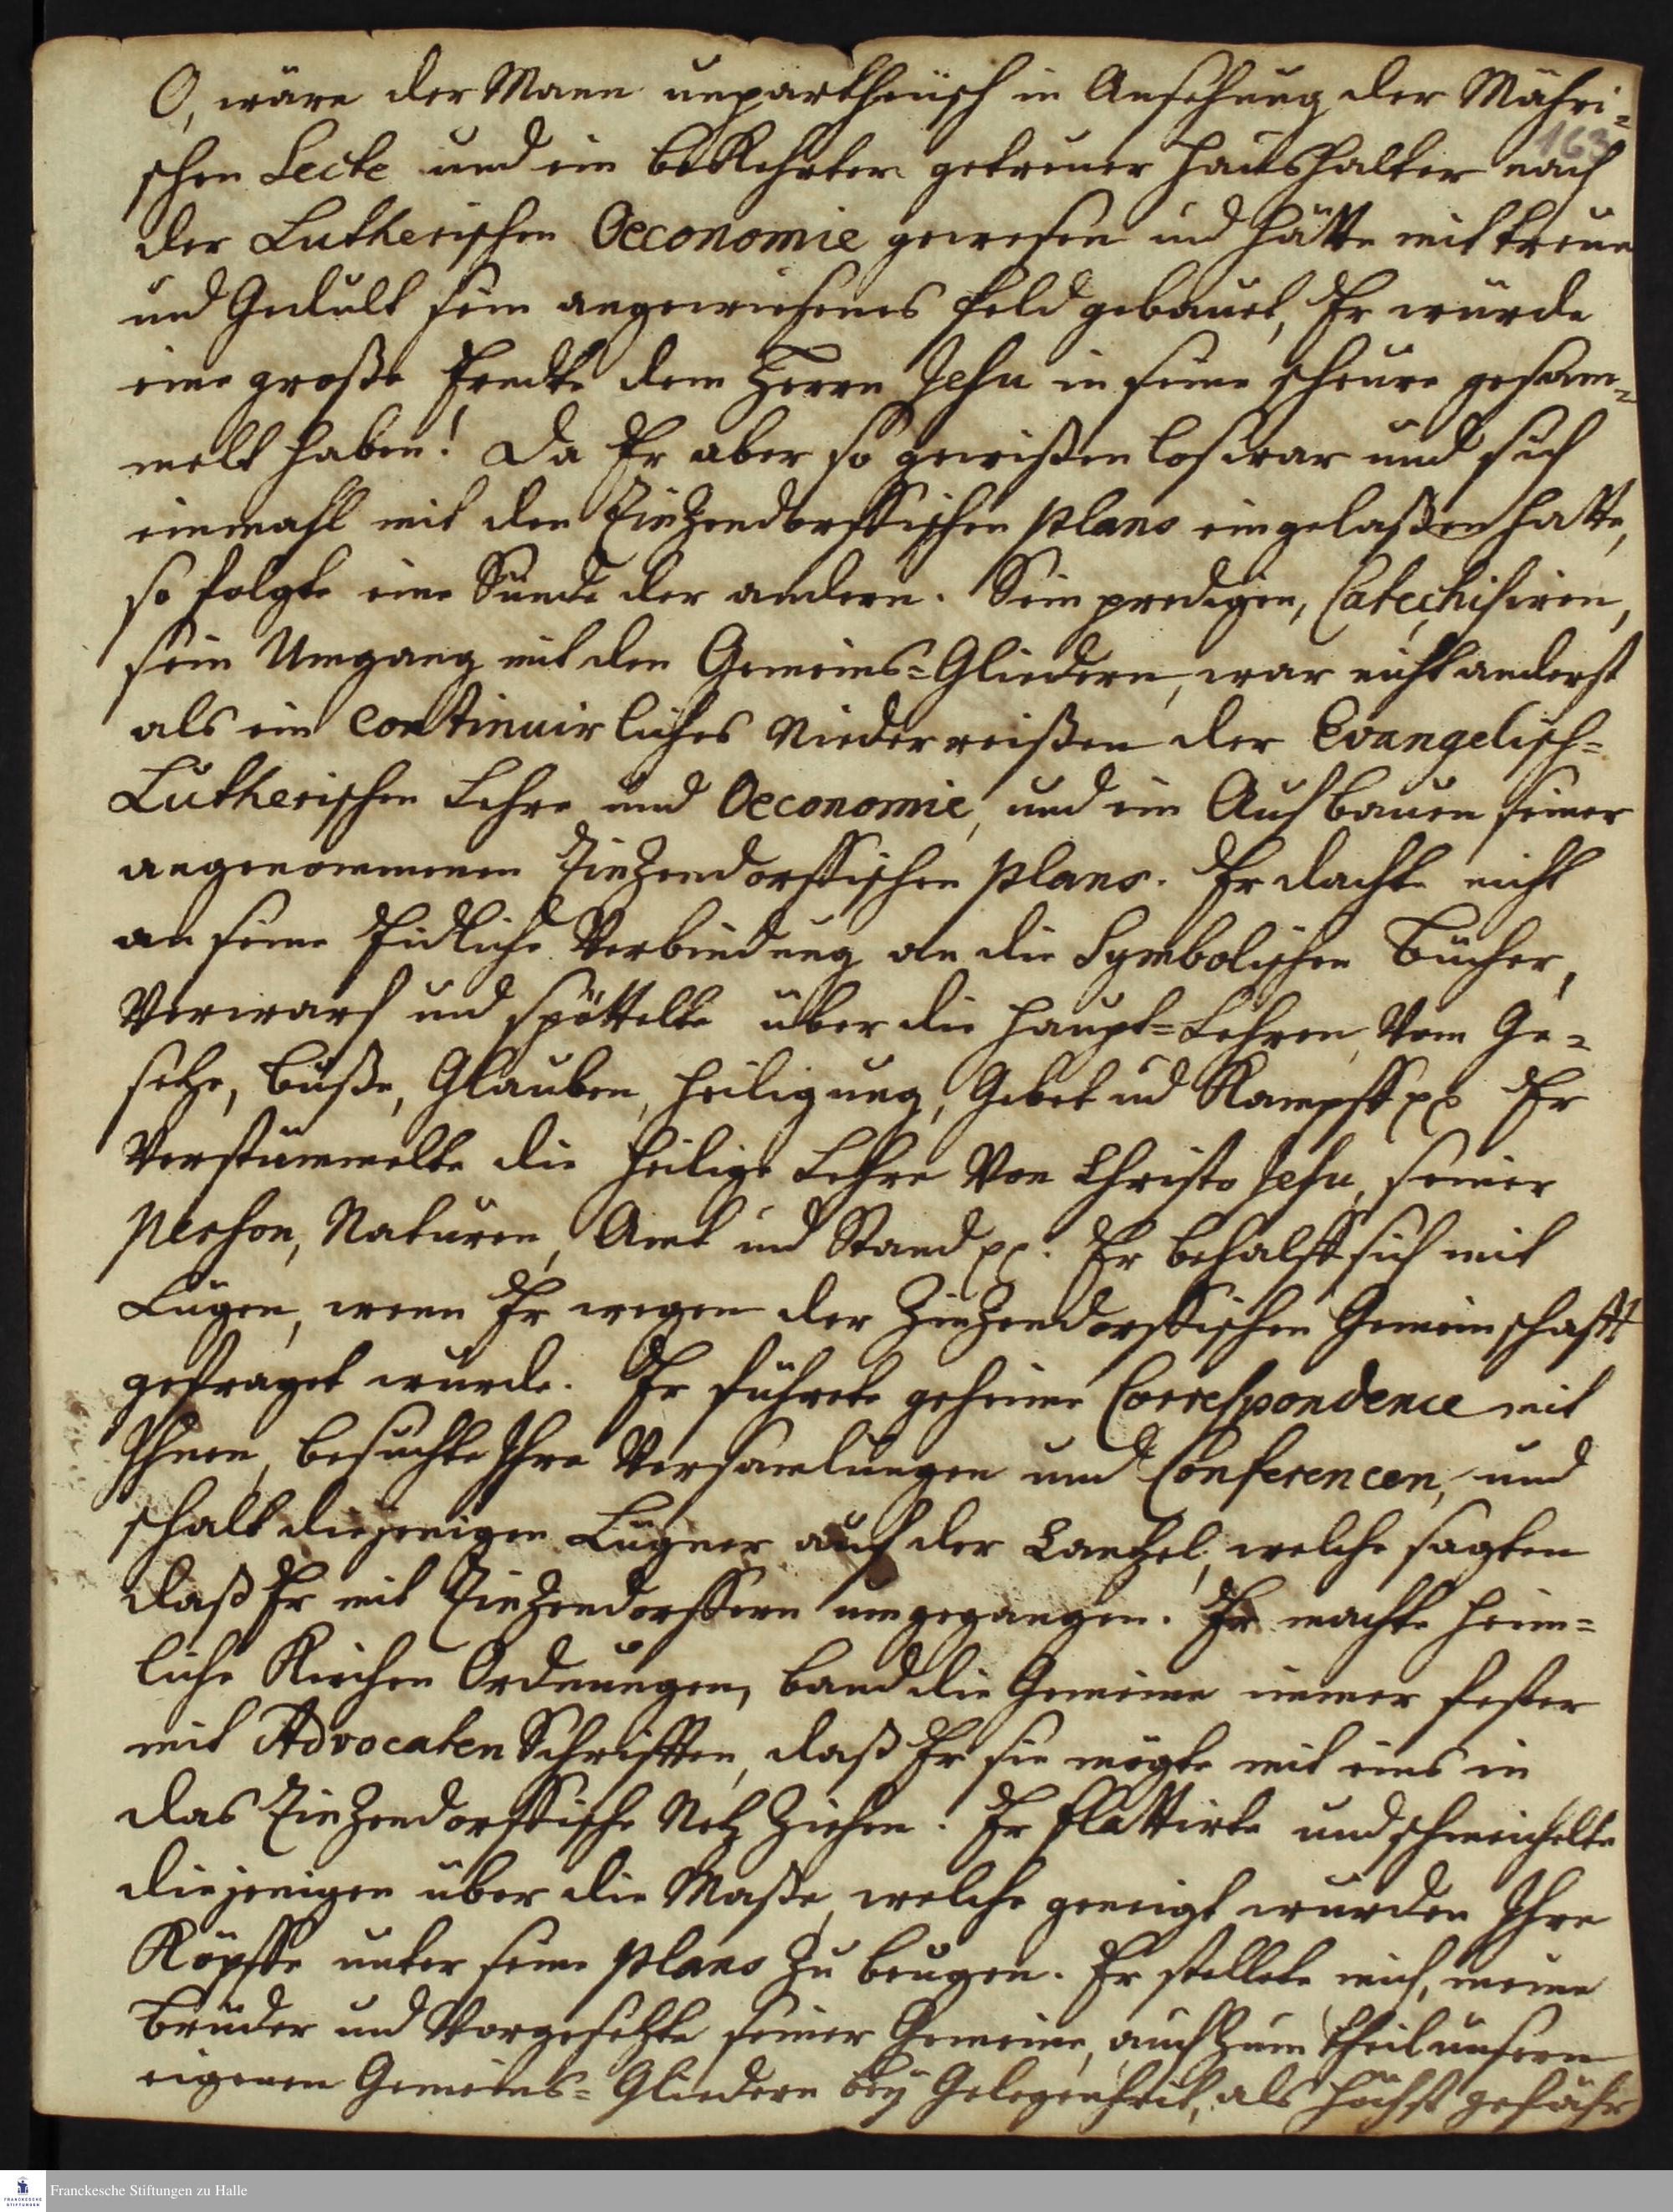 O, wäre der Mann unpartheiisch in Ansehung der Mähri-
163
schen Secte und ein bekehrter getreuer Haushalter nach
der Lutherischen Oeconomie gewesen und hätte mit treue
und Gedult sein angewiesenes Feld gebauet, Er würde
eine große Erndte dem Herrn Jesu in seine scheure gesam-
melt haben! Da Er aber so gewißenlos war und sich
einmahl mit den Zinzendorffischen plans eingelaßen hatte,
so folgte eine Sünde der andern. Sein predigen, Catechisiren,
sein Umgang mit den Gemeins-Gliedern, war nicht anderst
als ein continuirliches Niederreißen der Evangelisch-
Lutherischen Lehre und Oeconomie, und ein Aufbauen seiner
angenommenen Zinzendorffischen plans. Er dachte nicht
an seine Eidliche Verbindung an die Symbolischen Bücher,
Verwarf und spöttelte über die Haupt-Lehren, Vom Ge-
setze, Buße, Glauben, Heiligung, Gebet und Kampff pp Er
Verstümmelte die Heilige Lehre Von Christo Jesu, seiner
Person, Naturen, Amt und Stand pp. Er behalff sich mit
Lügen, wenn Er wegen der Zinzendorffischen Gemeinschafft
gefraget wurde. Er führete geheime Correspondence mit
Ihnen, besuchte Ihre Versamlungen und Conferencen, und
schalt diejenigen Lügner auf der Cantzel, welche sagten
daß Er mit Zinzendorffern umgegangen. Er machte heim-
liche Kirchen Ordnungen, band die Gemeine immer fester
mit Advocaten Schrifften, daß Er sie mögte mit eins in
das Zinzendorffische Netz ziehen. Er flattirte und schmeichelte
diejenigen über die Maße, welche geneigt wurden Ihre
Köpffe unter seine plans zu beugen. Er stellete mich, meine
Brüder und Vorgesetzte seiner Gemeine, auch zum theil unsern
eigenen Gemeins-Gliedern bey Gelegenheit, als höchst gefähr
Franckesche Stiftungen zu Halle
FRANCKESCHE STIFTUNGEN